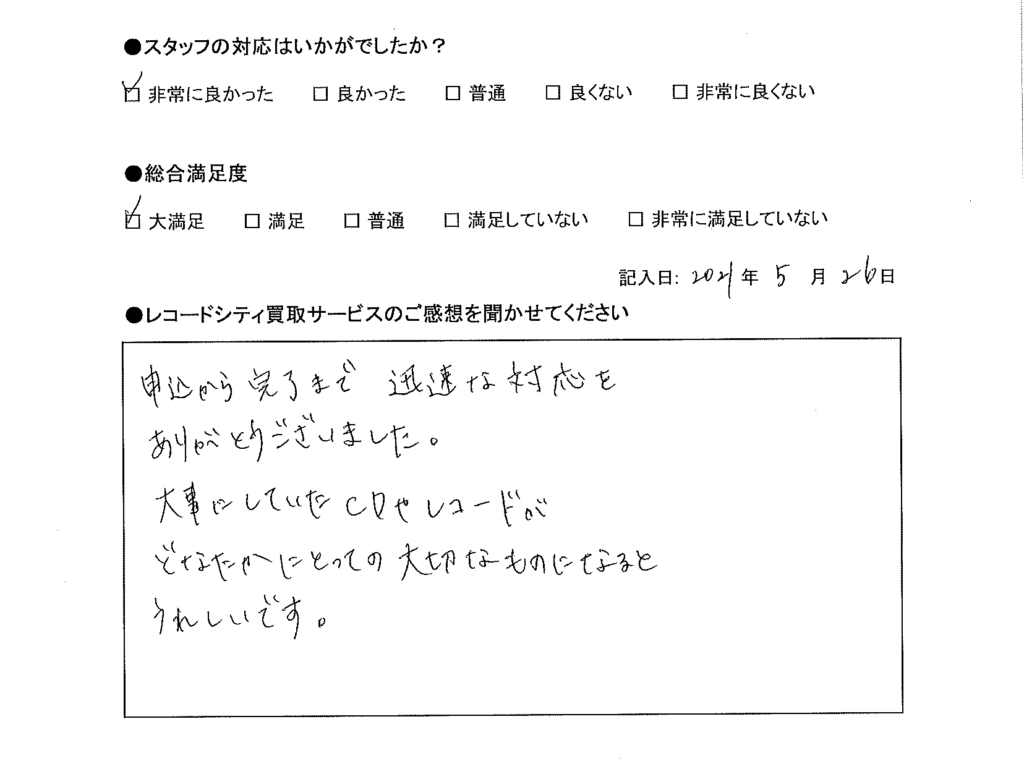 ●スタッフの対応はいかがでしたか？
☑ 非常に良かった □ 良かった □ 普通 □ 良くない □ 非常に良くない
●総合満足度
☑ 大満足 □ 満足 □ 普通 □ 満足していない □ 非常に満足していない
記入日: 2021年 5 月 26日
●レコードシティ買取サービスのご感想を聞かせてください
申込から完了まで 迅速な対応を
ありがとうございました。
大事にしていたCDやレコードが
どなたかにとっての大切なものになると
うれしいです。